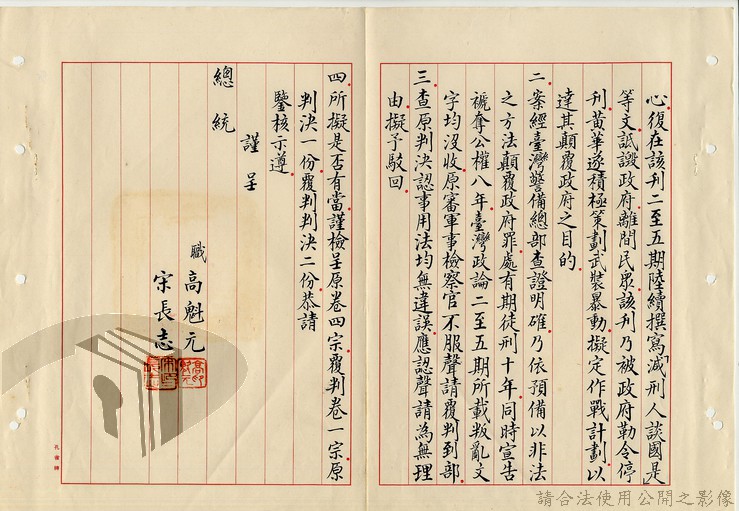 心復在該刊二至五期陸續撰寫「減刑人談國是」
等文詆譭政府離間民眾該刊乃被政府勒令停
刊黃華遂積極策劃武裝暴動擬定作戰計劃以
達其顛覆政府之目的
二案經臺灣警備總部查證明確乃依預備以非法
之方法顛覆政府罪處有期徒刑十年同時宣告
褫奪公權八年臺灣政論二至五期所載叛亂文
字均沒收原審軍事檢察官不服聲請覆判到部
三查原判決認事用法均無違誤應認聲請為無理
由擬予駁回
四所擬是否有當謹檢呈原卷四宗覆判卷一宗原
判決一份覆判判決二份恭請
鑒核示遵
謹呈
總統
職高魁元
宋長志
請合法使用公開之影像